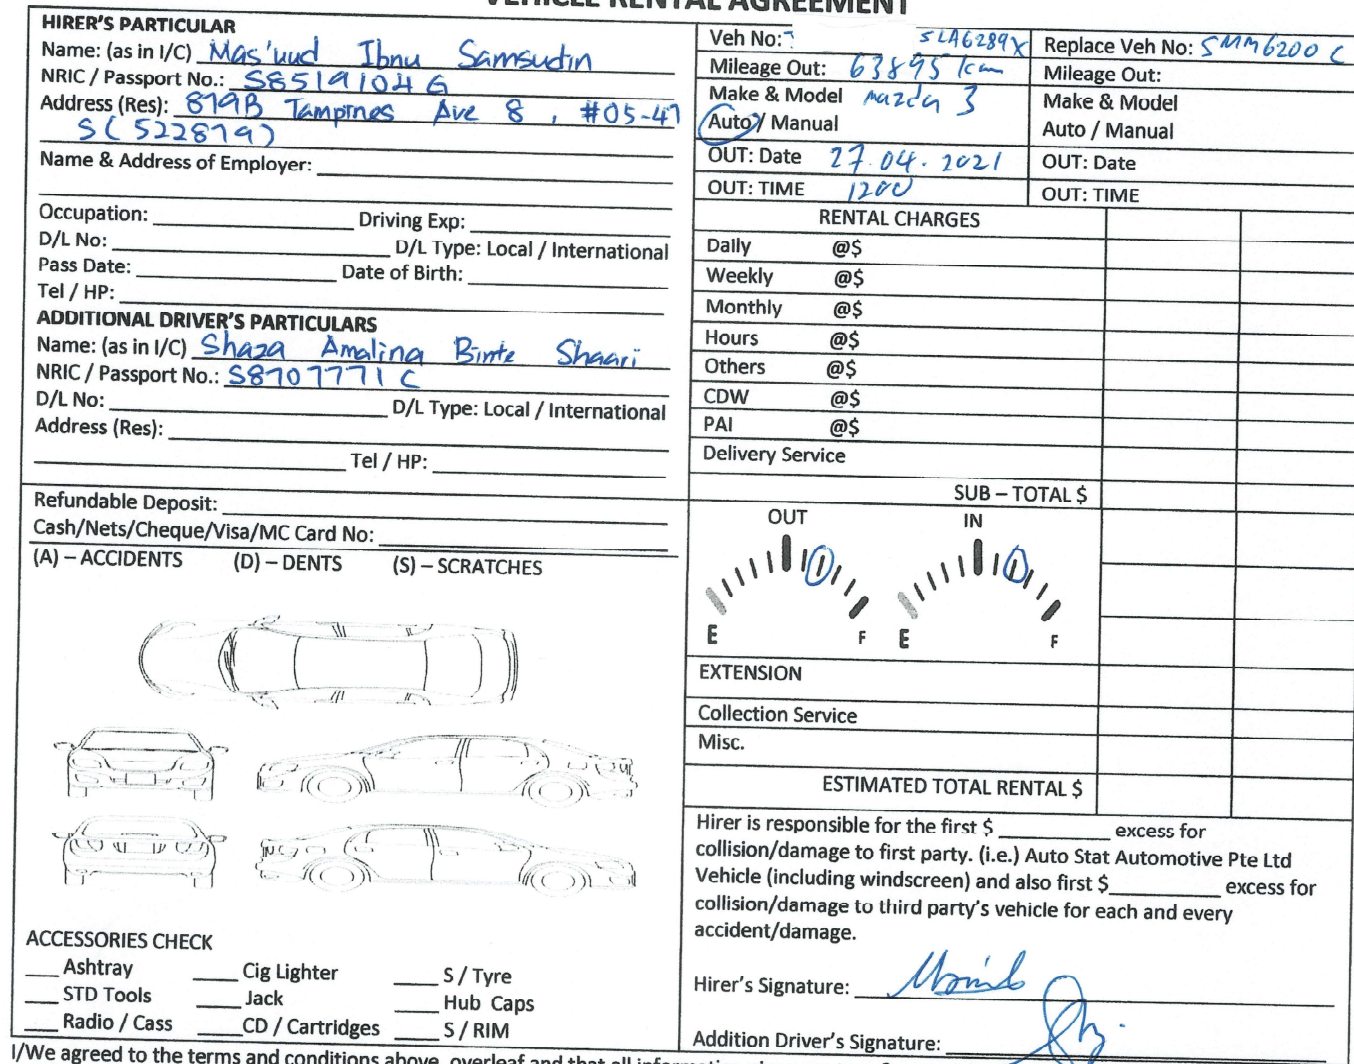 VEHICLE RENTAL AGREEMENT
HIRER'S PARTICULAR
Name: (as in I/C) Mas'uud Ibnu Samsudin
NRIC / Passport No.: S8519104G
Address (Res): 879B Tampines Ave 8, #05-47
S(522879)
Name & Address of Employer:
Occupation: Driving Exp:
D/L No: D/L Type: Local / International
Pass Date: Date of Birth:
Tel / HP:
ADDITIONAL DRIVER'S PARTICULARS
Name: (as in I/C) Shaza Amalina Binte Shaari
NRIC / Passport No.: S8707771C
D/L No: D/L Type: Local / International
Address (Res):
Tel / HP:
Refundable Deposit:
Cash/Nets/Cheque/Visa/MC Card No:
(A) – ACCIDENTS (D) – DENTS (S) – SCRATCHES
ACCESSORIES CHECK
Ashtray Cig Lighter S / Tyre
STD Tools Jack Hub Caps
Radio / Cass CD / Cartridges S / RIM
Veh No: SLA6289X Replace Veh No: SMM6200C
Mileage Out: 63895 km Mileage Out:
Make & Model Mazda 3 Make & Model
Auto / Manual Auto / Manual
OUT: Date 27.04.2021 OUT: Date
OUT: TIME 1200 OUT: TIME
RENTAL CHARGES
Daily @$
Weekly @$
Monthly @$
Hours @$
Others @$
CDW @$
PAI @$
Delivery Service
SUB – TOTAL $
OUT IN
E F E F
EXTENSION
Collection Service
Misc.
ESTIMATED TOTAL RENTAL $
Hirer is responsible for the first $ excess for
collision/damage to first party. (i.e.) Auto Stat Automotive Pte Ltd
Vehicle (including windscreen) and also first $ excess for
collision/damage to third party's vehicle for each and every
accident/damage.
Hirer's Signature:
Addition Driver's Signature:
I/We agreed to the terms and conditions above, overleaf and that all